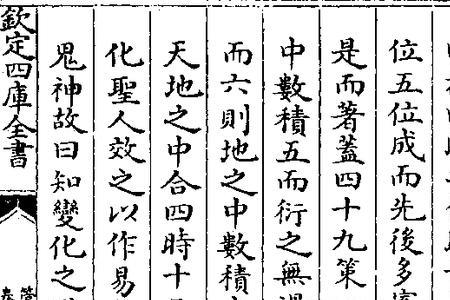 位五位成而先後多
是而著蓋四十九策
中數積五而衍之無
而六則地之中數積
天地之中合四時十
化聖人效之以作易
鬼神故曰知變化之
欽定四庫全書